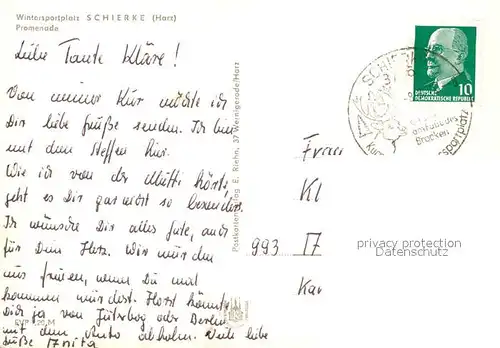 Wintersportplatz SCHIERKE (Harz)
Promenade
Liebe Tante Kläre!
Von meiner Kur möchte ich
Dir liebe Grüße senden. Ich bin
mit dem Steffen hier.
Wie ich von der Mutti hörte,
geht es Dir gar nicht so besonders.
Ich wünsche Dir alles Gute, auch
für Dein Herz. Wir würden
uns freuen, wenn Du mal
kommen würdest. Horst könnte
Dich ja von Jüterbog oder Berlin
mit dem Auto abholen. Viele liebe
Grüße Anita
Postkartenverlag E. Riehn, 37 Wernigerode/Harz
SCHIERKE
am Fuße des
Brocken
10
DEUTSCHE
DEMOKRATISCHE REPUBLIK
Frau
Kl
993 17
Kar
privacy protection
Datenschutz